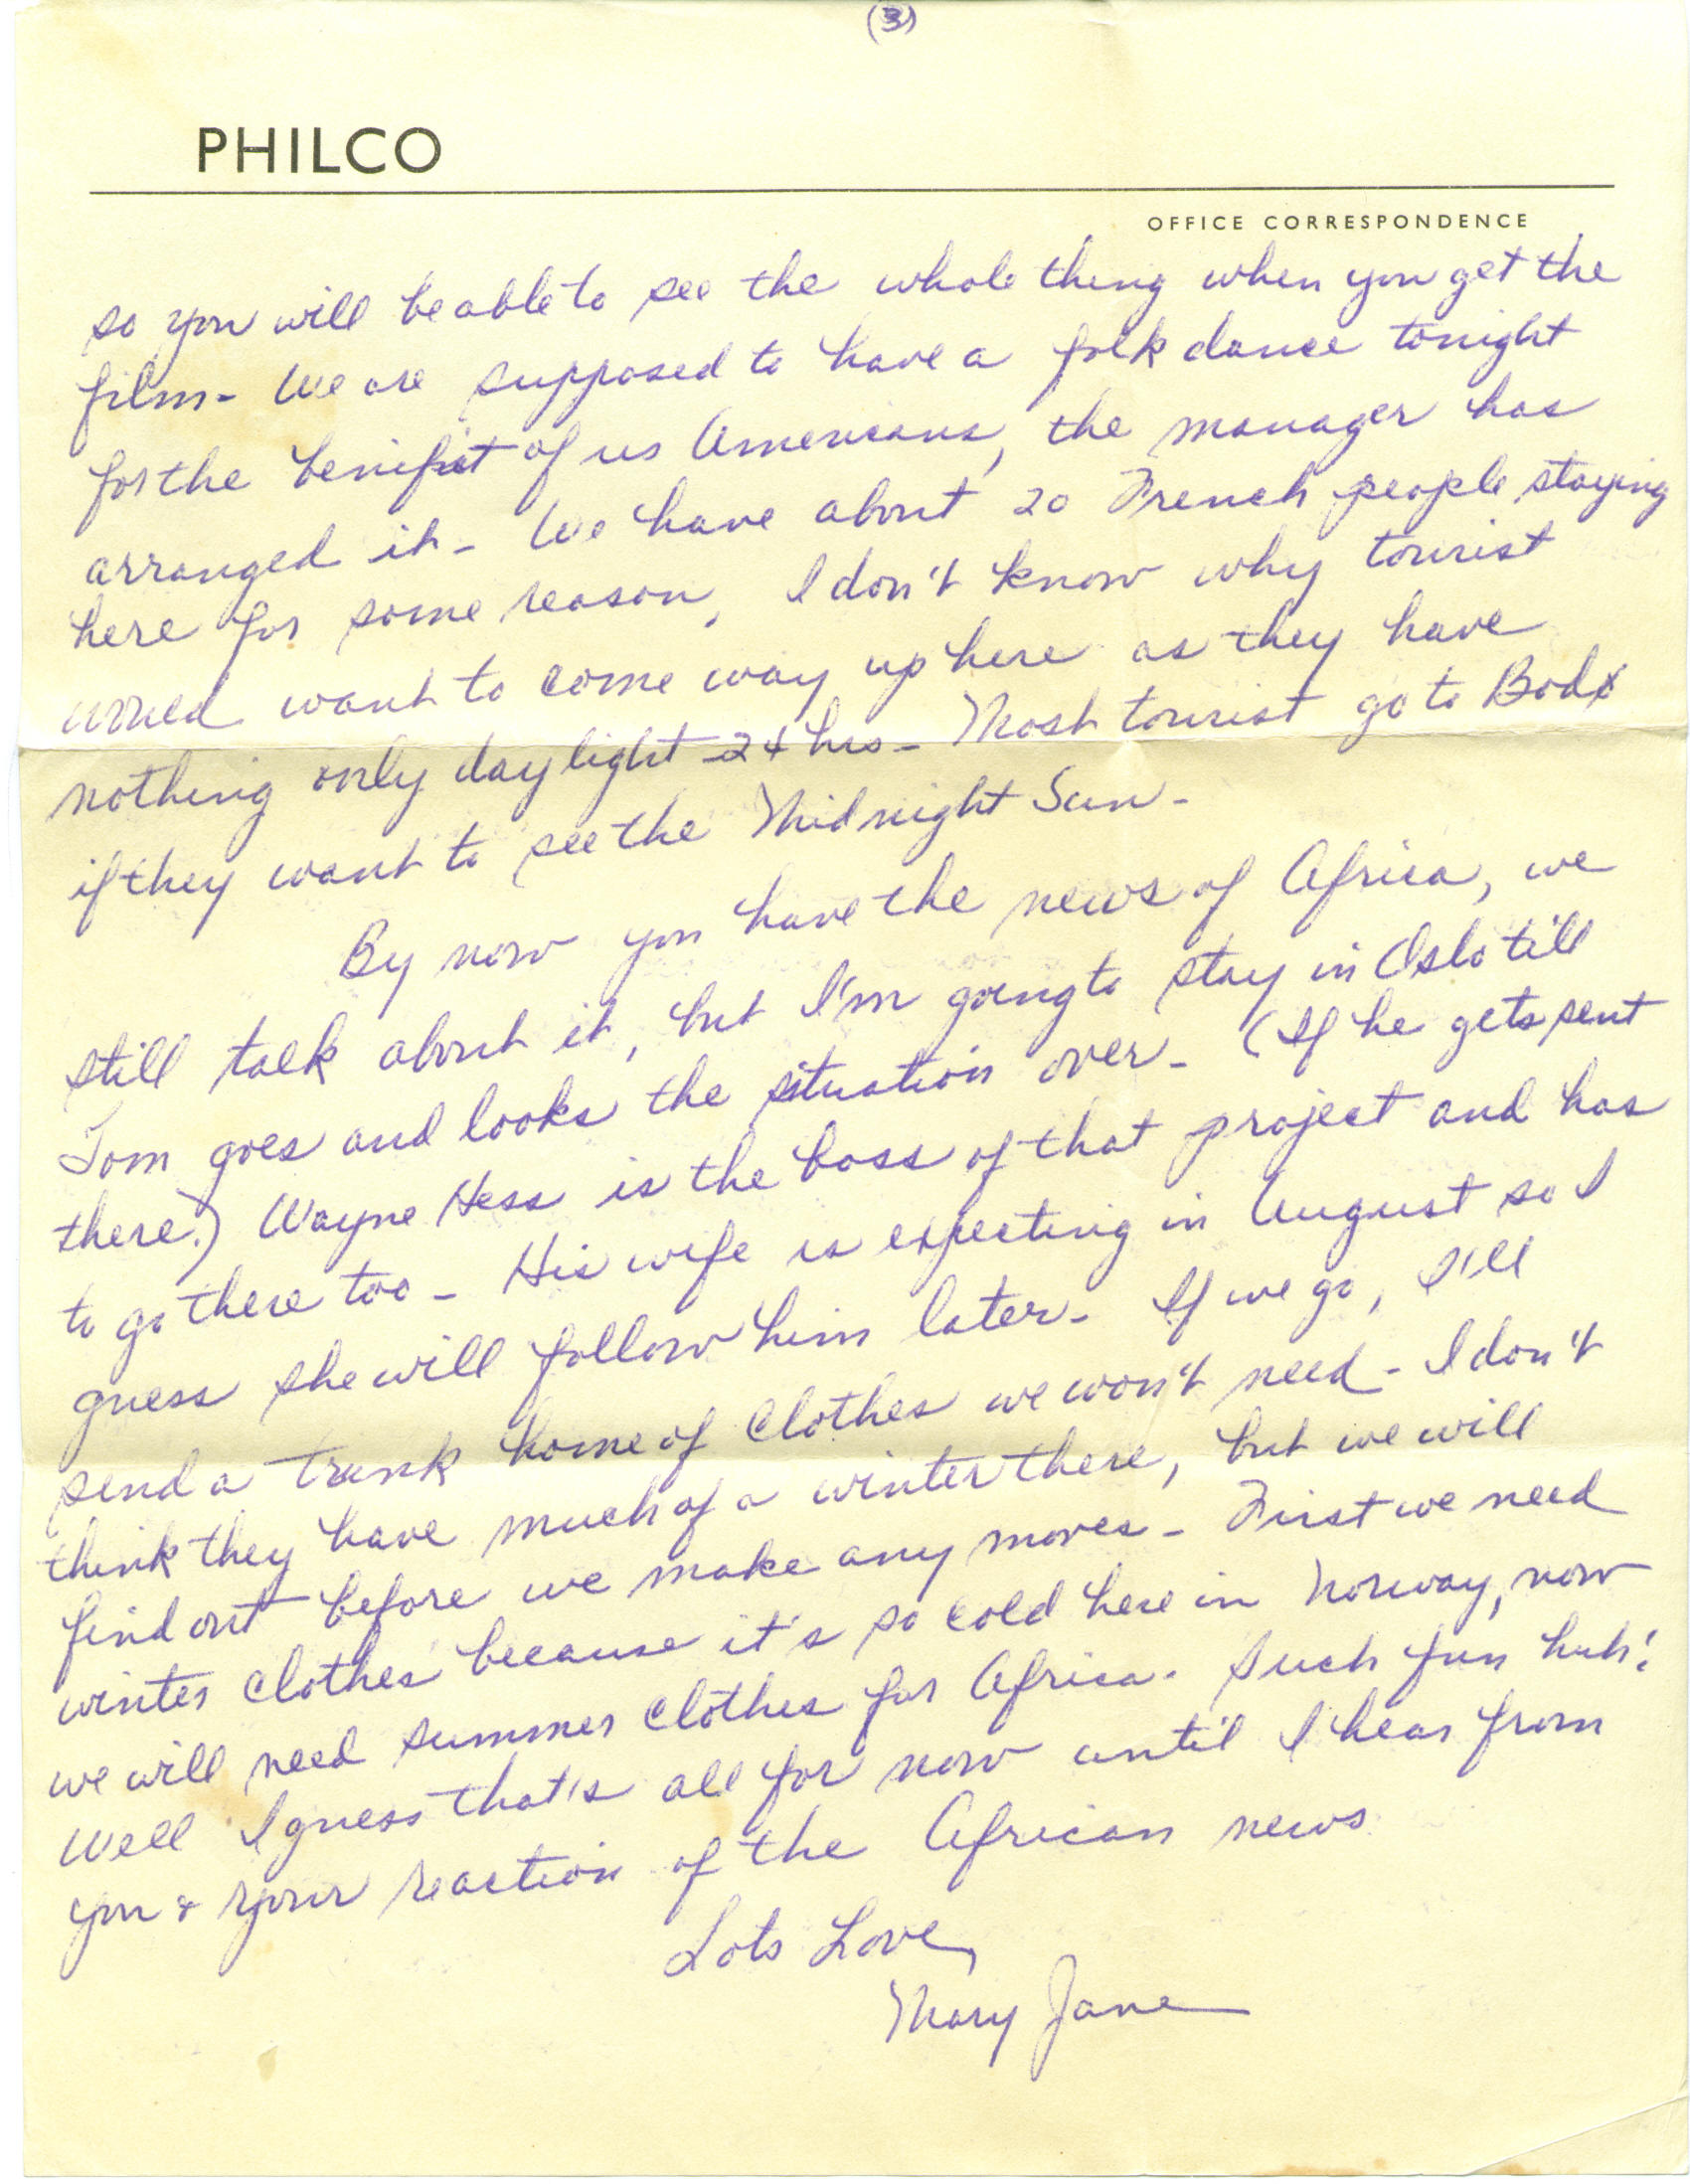 (3)
PHILCO
OFFICE CORRESPONDENCE
so you will be able to see the whole thing when you get the
film - We are supposed to have a folk dance tonight
for the benifit of us Americans, the manager has
arranged it - We have about 20 French people staying
here for some reason, I don't know why tourist
would want to come way up here as they have
nothing only daylight 24 hrs - Most tourist go to Bodø
if they want to see the Midnight Sun -
By now you have the news of Africa, we
still talk about it, but I'm going to stay in Oslo till
Tom goes and looks the situation over - (If he gets sent
there.) Wayne Hess is the boss of that project and has
to go there too - His wife is expecting in August so I
guess she will follow him later - If we go, I'll
send a trunk home of clothes we won't need - I don't
think they have much of a winter there, but we will
find out before we make any moves - First we need
winter clothes because it's so cold here in Norway, now
we will need summer clothes for Africa. Such fun huh!
Well I guess that's all for now until I hear from
you & your reaction of the African news
Lots Love,
Mary Jane